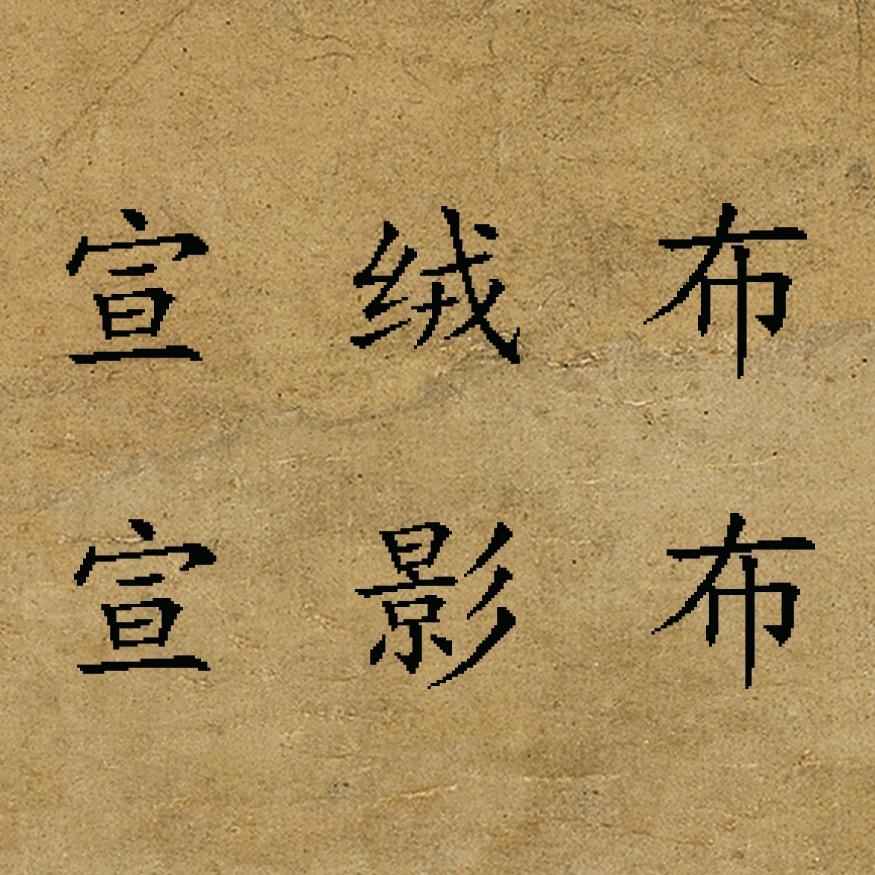 宣绒布
宣影布